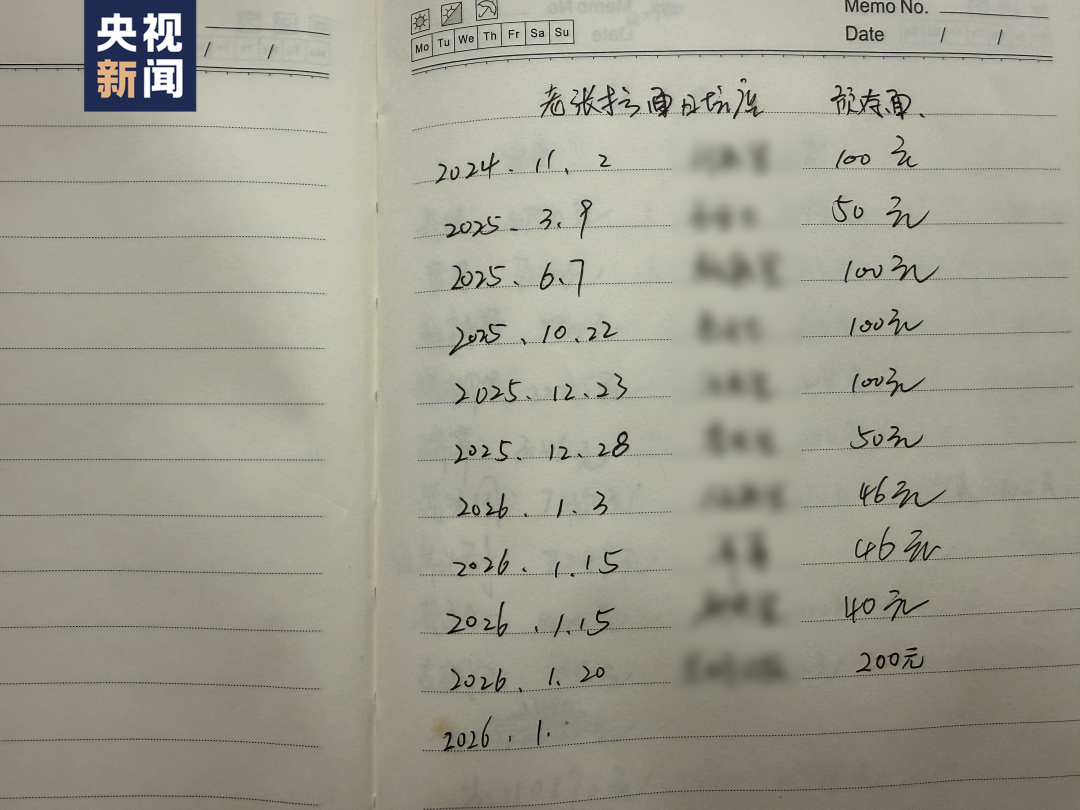 央视
新闻
/ /
Mo Tu We Th Fr Sa Su
Memo No.
Date / /
老张拉面日坛店 预存面.
2024.11.2 100元
2025.3.9 50元
2025.6.7 100元
2025.10.22 100元
2025.12.23 100元
2025.12.28 50元
2026.1.3 46元
2026.1.15 46元
2026.1.15 40元
2026.1.20 200元
2026.1.